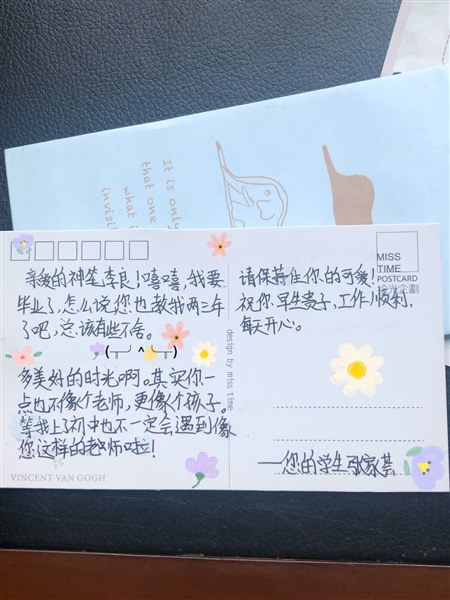 It is only
that one
what i
invisi
MISS
TIME
POSTCARD
拾光企劃
亲爱的神笔李良！嘻嘻，我要
毕业了，怎么说您也教我两三年
了吧，总该有些不舍。
多美好的时光啊。其实你一
点也不像个老师，更像个孩子。
等我上初中也不一定会遇到像
您这样的老师啦！
VINCENT VAN GOGH
design by miss time
请保持住你的可爱！
祝你早生贵子，工作顺利，
每天开心。
——您的学生张家芸